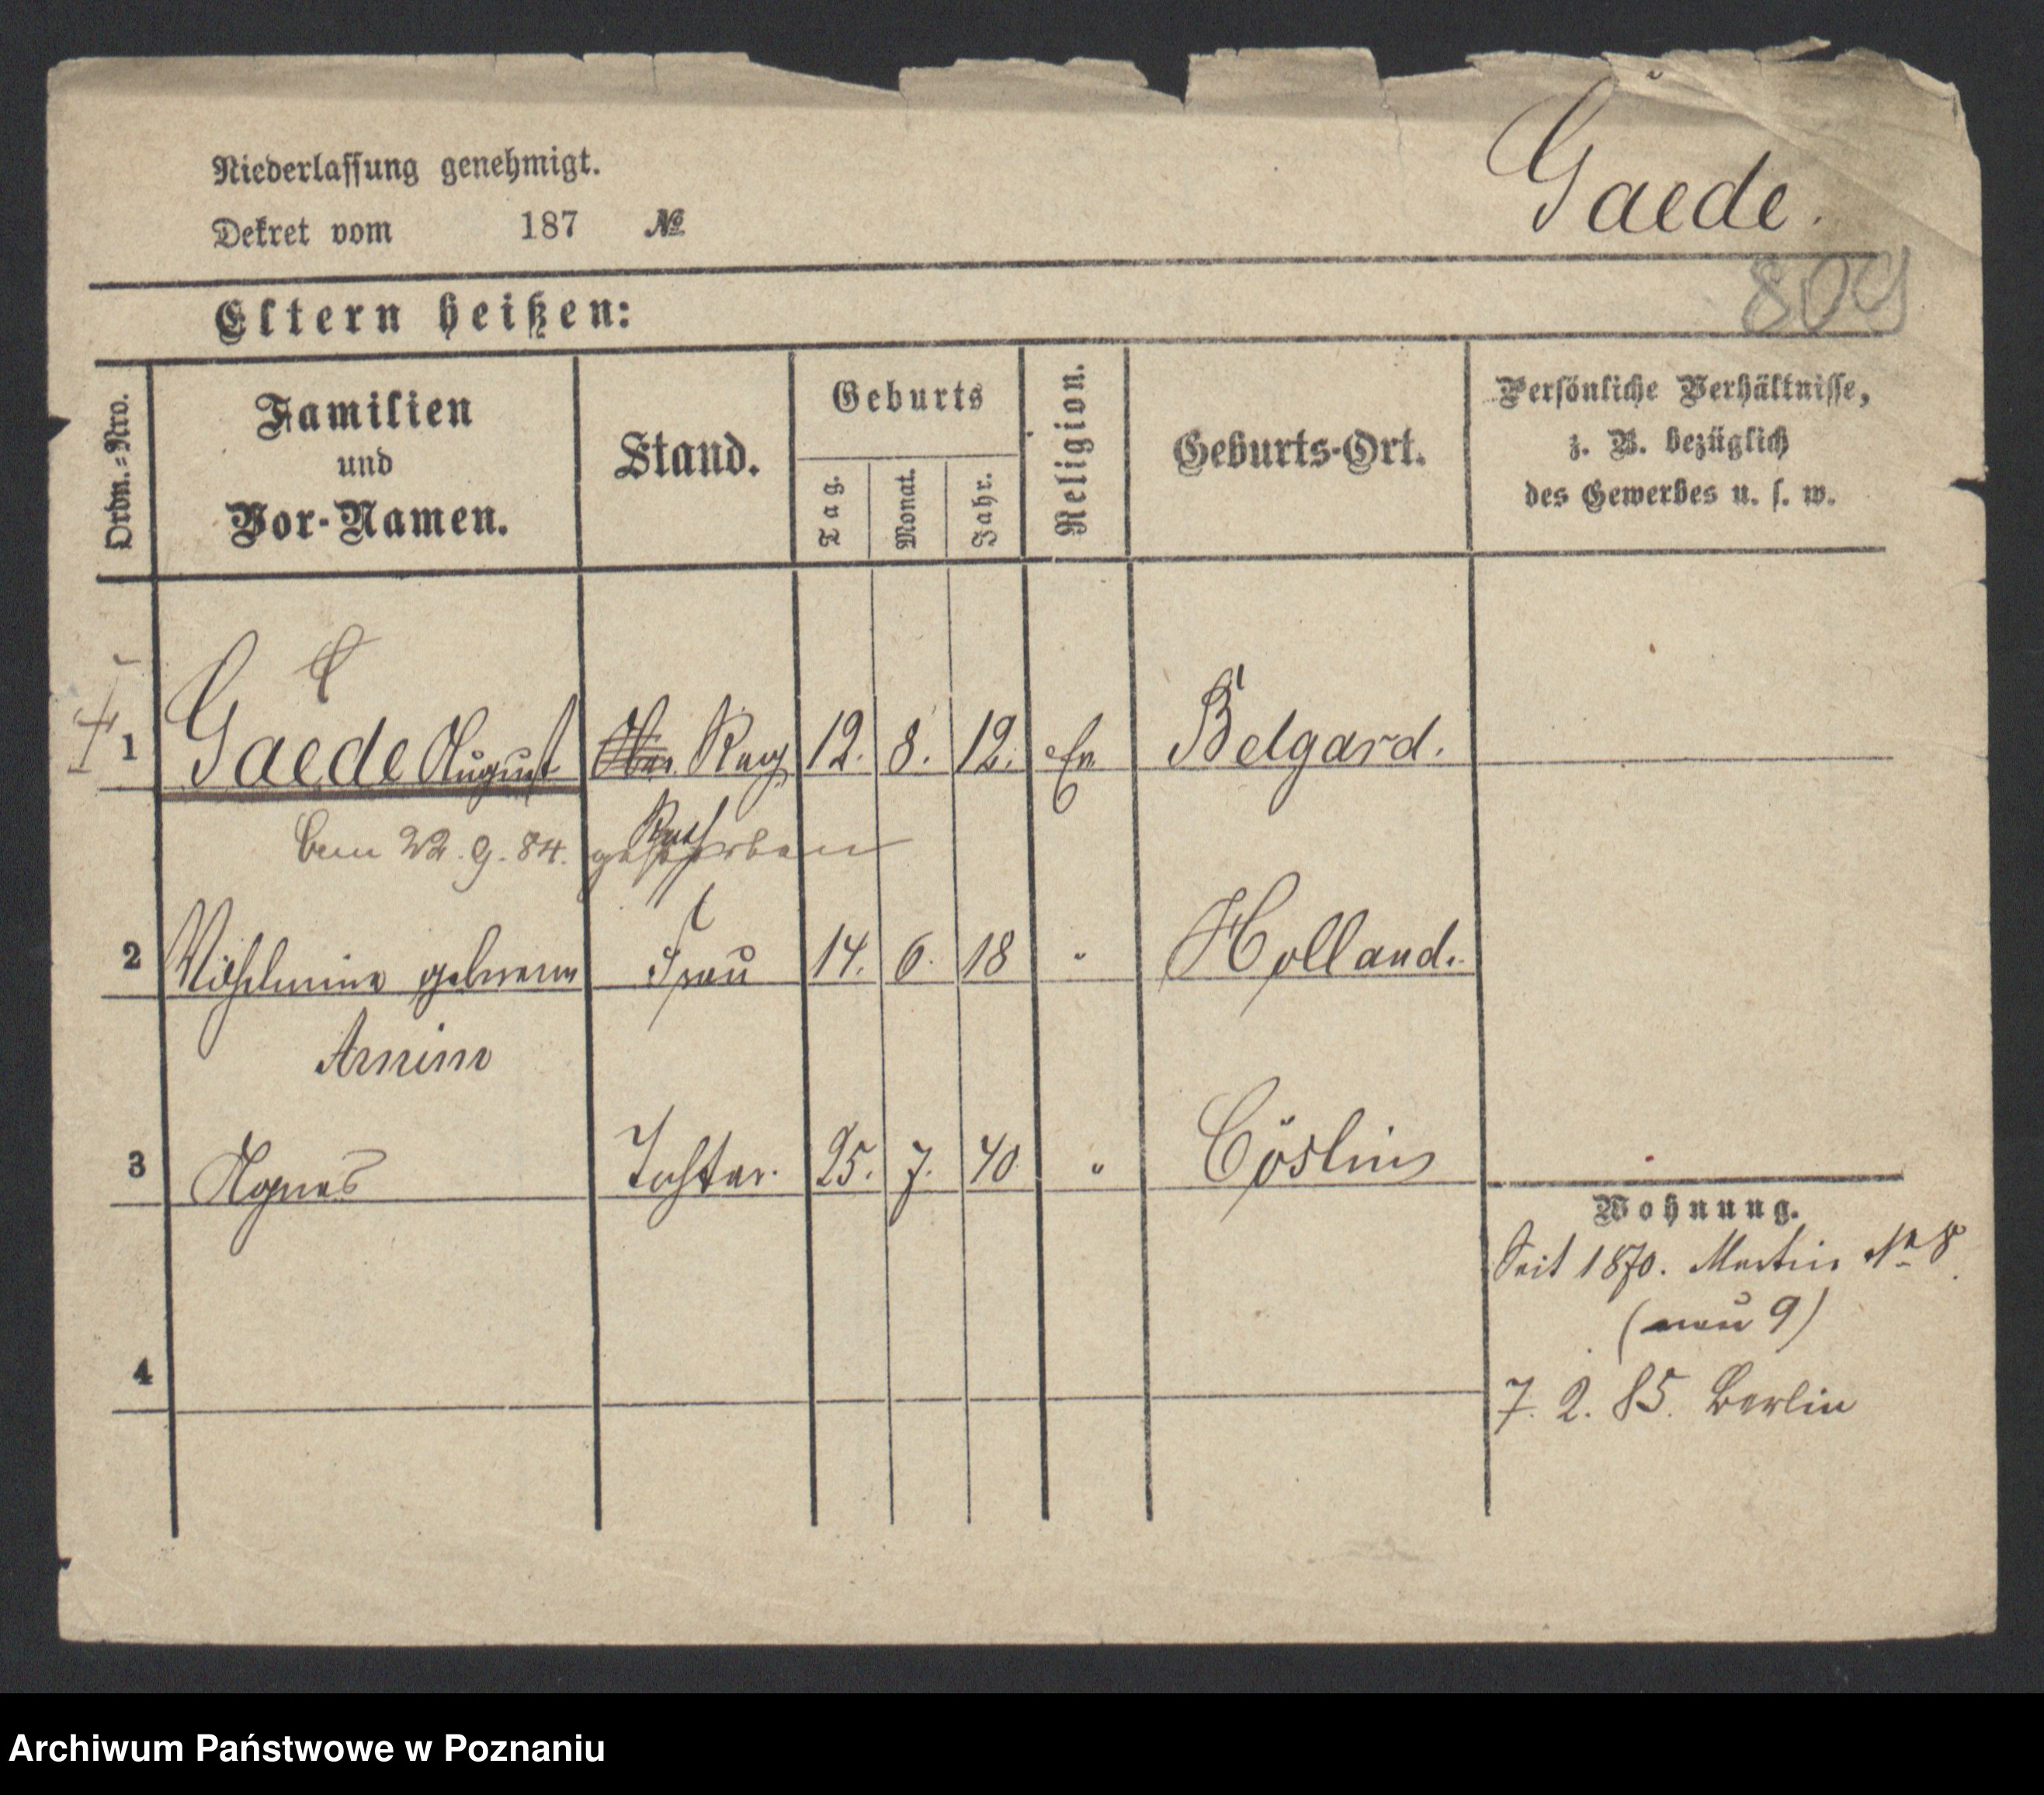 Gaede.
Niederlassung genehmigt.
Dekret vom 187 №
809
Eltern heißen:
Ordn.=Nro.
Familien
und
Vor-Namen.
Stand.
Geburts
Tag.
Monat.
Jahr.
Religion.
Geburts-Ort.
Persönliche Verhältnisse,
z. B. bezüglich
des Gewerbes u. s. w.
1 Gaede August Reg 12. 8. 12. Ev. Belgard.
Rath
22. 9. 84. gestorben
2 Wilhelmine geborene Frau 14. 6. 18 " Holland.
Arnim
3 Agnes Tochter. 25. 7. 40 " Cöslin
Wohnung.
Seit 1870. Martin № 8.
(neu 9)
4
7. 2. 85. Berlin
Archiwum Państwowe w Poznaniu